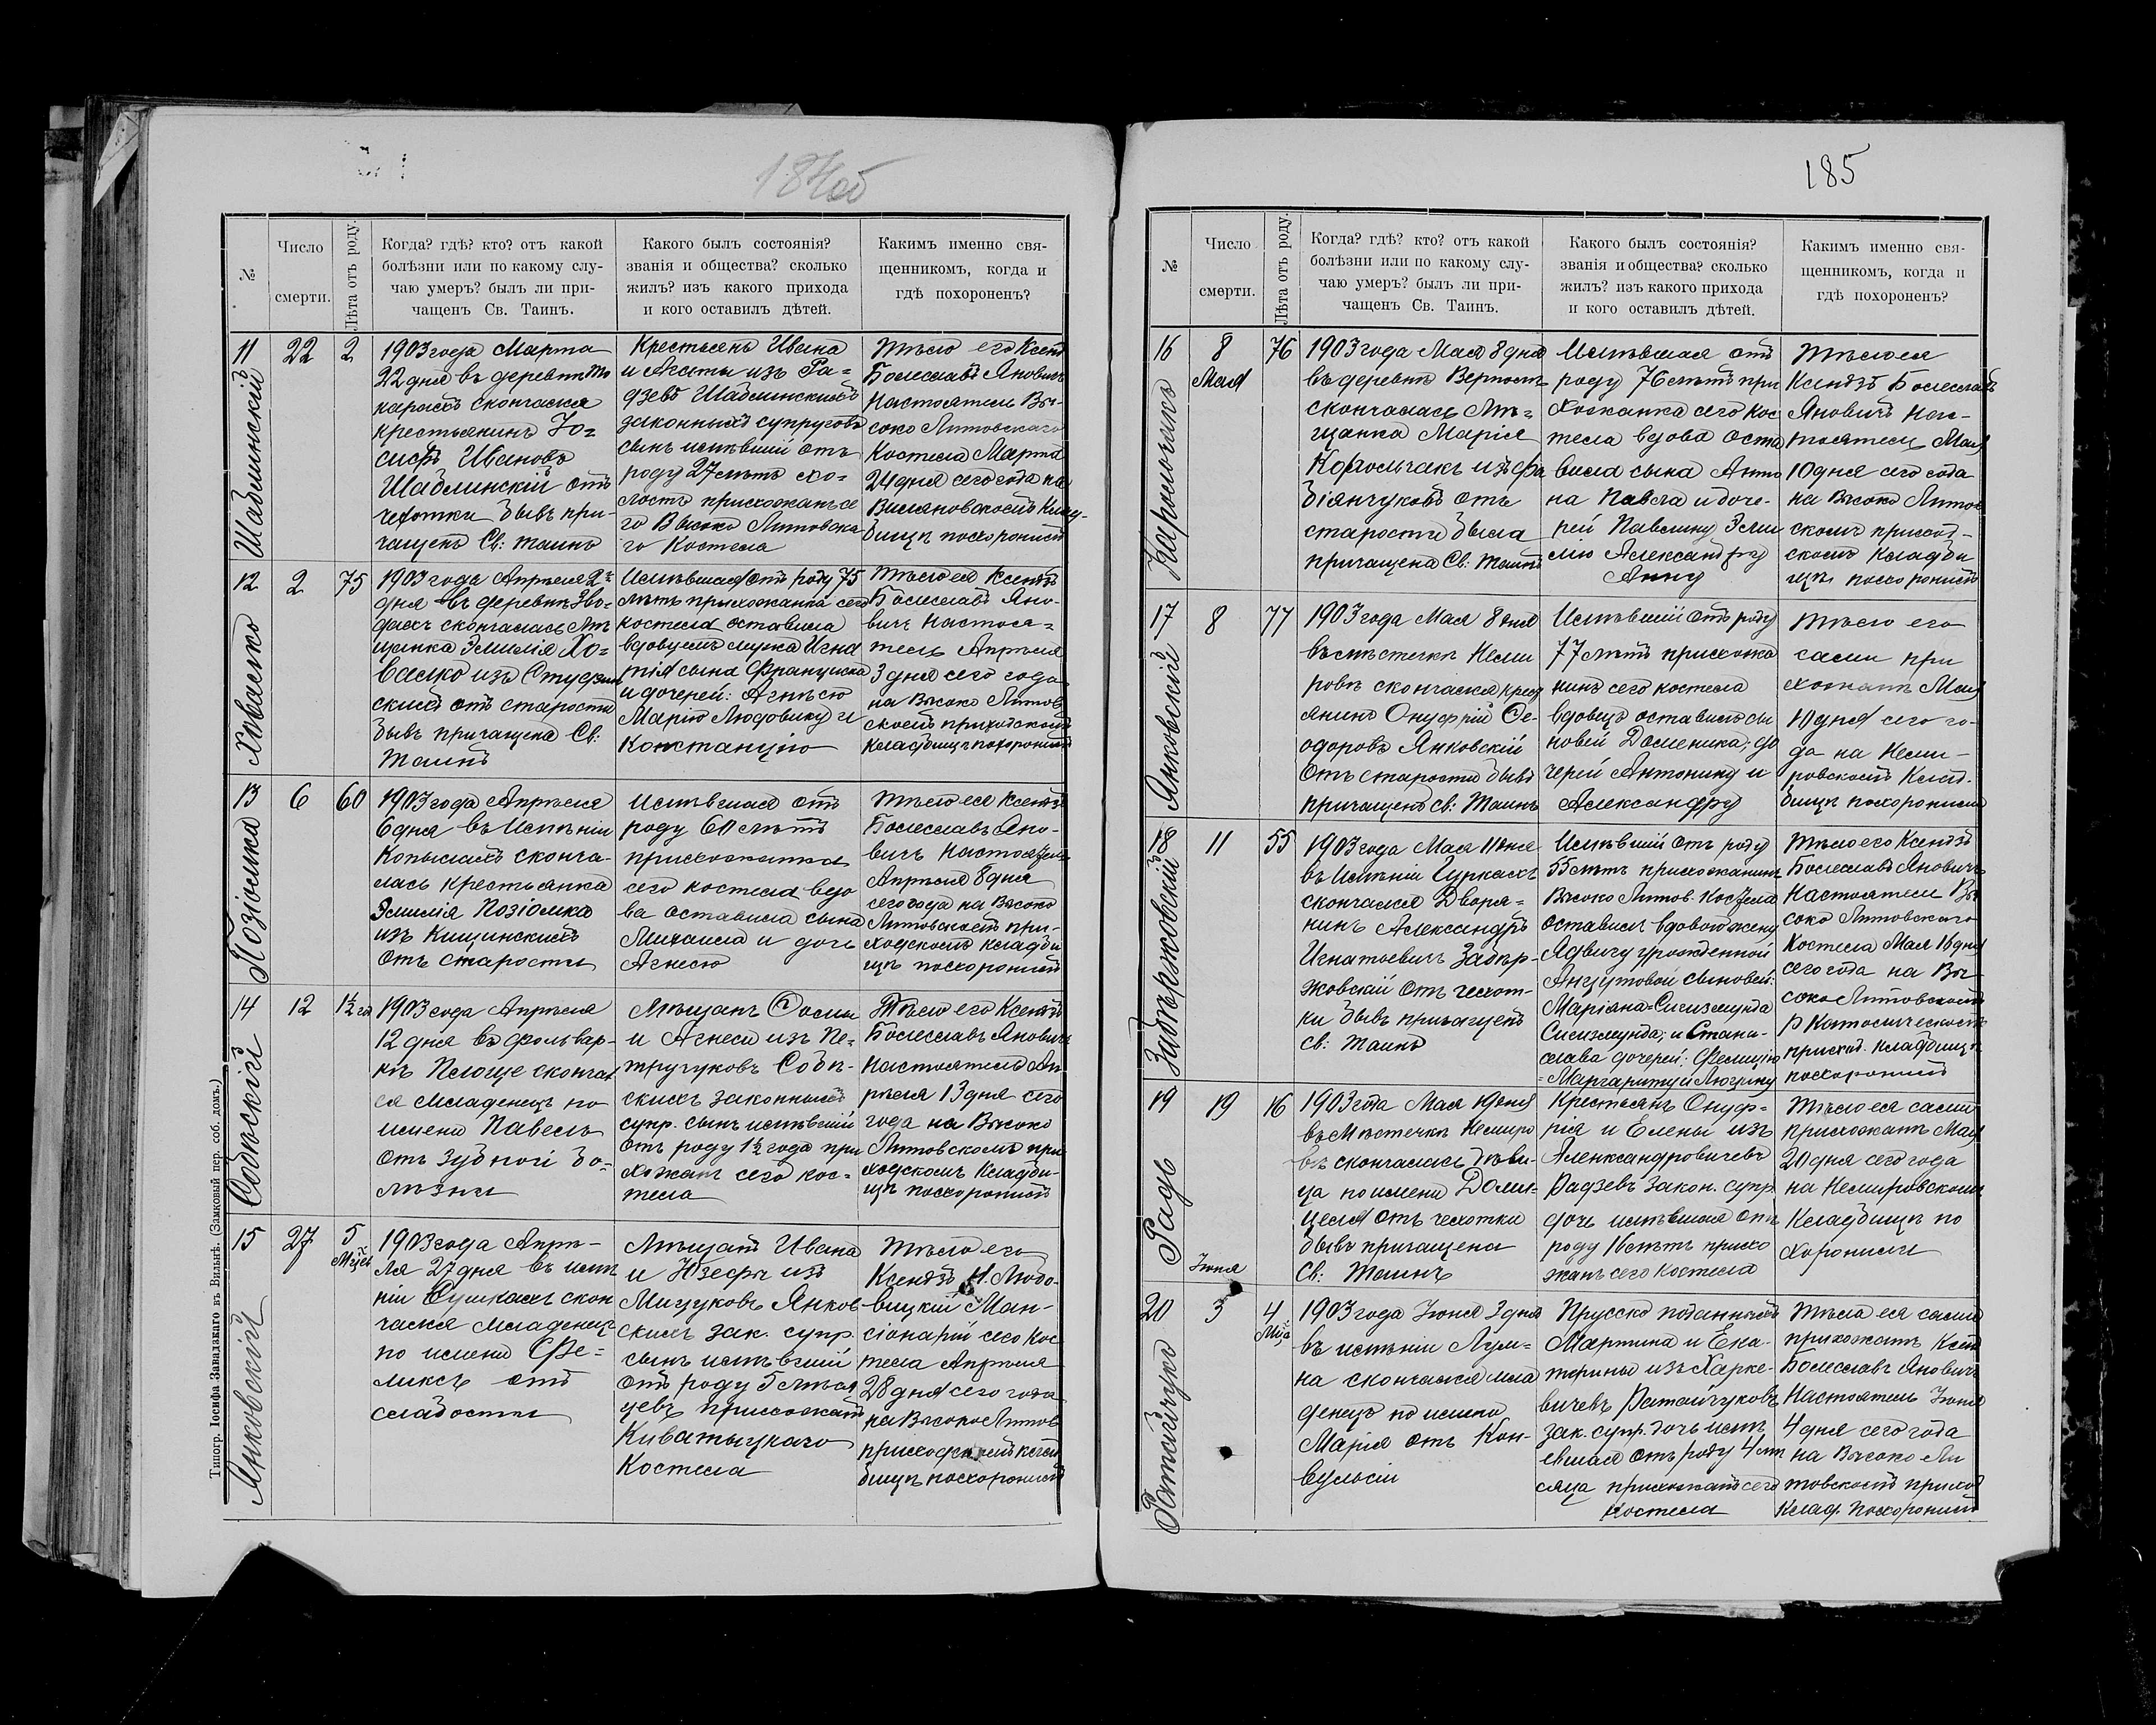 184об
№
Число
смерти.
Лѣта отъ роду.
Когда? гдѣ? кто? отъ какой
болѣзни или по какому слу-
чаю умеръ? былъ ли при-
чащенъ Св. Таинъ.
Какого былъ состоянія?
званія и общества? сколько
жилъ? изъ какого прихода
и кого оставилъ дѣтей.
Какимъ именно свя-
щенникомъ, когда и
гдѣ похороненъ?
11
Шаблинскій
22
2
1903 года Марта
22 дня въ деревнѣ То
карахъ скончался
крестьянинъ Іо=
сифъ Ивановъ
Шаблинскій отъ
чехотки бывъ при-
чащенъ Св: таинъ
Крестьянъ Ивана
и Агаты изъ Ра=
дзевъ Шаблинскихъ
законныхъ супруговъ
сынъ имѣвшій отъ
роду 27 лѣтъ хо=
лостъ прихожанъ се
го Высоко Литовска
го Костела
Тѣло его Ксендзъ
Болеславъ Яновичъ
Настоятель Вы-
соко Литовскаго
Костела Марта
24 дня сего года на
Вилямовскомъ Клад-
бищѣ похоронилъ
12
Хваłько
2
75
1903 года Апрѣля 2го
дня въ деревнѣ Зво-
дахъ скончалась Мѣ
щанка Эмилія Хо=
валко изъ
скихъ отъ старости
бывъ причащена Св:
Таинъ
Имѣвшая отъ роду 75
лѣтъ прихожанка сего
костела оставила
вдовцемъ мужа Игна
тія сына Франциска
и дочерей: Агнѣсю
Марію Людовику и
Констанцію
Тѣло ея Ксендзъ
Болеславъ Яно-
вичъ Настоя=
тель Апрѣля
3 дня сего года
на Высоко Литов
скомъ приходскомъ
кладбищѣ похоронилъ
13
Позіомка
6
60
1903 года Апрѣля
6 дня въ Имѣніи
Копылахъ сконча-
лась крестьянка
Эмилія Позіомка
изъ Кищинскихъ
отъ старости
Имѣвшая отъ
роду 60 лѣтъ
прихожанка
сего костела вдо
ва оставила сына
Михаила и дочь
Агнесю
Тѣло ея Ксендзъ
Болеславъ Яно-
вичъ Настоятель
Апрѣля 8 дня
сего года на Высоко
Литовскомъ при-
ходскомъ кладби
щѣ похоронилъ
14
Собѣскій
12
1½ год
1903 года Апрѣля
12 дня въ фольвар-
кѣ Пелище скончал
ся младенецъ по
имени Павелъ
отъ зубной бо-
лѣзни
Мѣщанъ Ѳомы
и Агнеси изъ Пе=
тручуковъ Собѣ-
скихъ законныхъ
супр. сынъ имѣвшій
отъ роду 1½ года при
хожанъ сего кос-
тела
Тѣло его Ксендзъ
Болеславъ Яновичъ
Настоятель Ап
рѣля 13 дня сего
года на Высоко
Литовскомъ при
ходскомъ Кладби-
щѣ похоронилъ
15
Янковскій
27
5
Мѣсец
1903 года Апрѣ-
ля 27 дня въ имѣ
ніи Сушкахъ скон
чался Младенецъ
по имени Фе=
ликсъ отъ
слабости
Мѣщанъ Ивана
и Юзефы изъ
Мицуковъ Янков
скихъ зак. супр.
сынъ имѣвшій
отъ роду 5 мѣся
цевъ прихожанъ
Киватыцкаго
Костела
Тѣло его
Ксендзъ Н. Любо-
вицкій Ман-
сіонарій сего Кос
тела Апрѣля
28 дня сего года
на Высоко Литов
приходскомъ клад
бищѣ похоронилъ
Типогр. Іосифа Завадзкаго въ Вильнѣ. (Замковый пер. соб. домъ.)
185
№
Число
смерти.
Лѣта отъ роду.
Когда? гдѣ? кто? отъ какой
болѣзни или по какому слу-
чаю умеръ? былъ ли при-
чащенъ Св. Таинъ.
Какого былъ состоянія?
званія и общества? сколько
жилъ? изъ какого прихода
и кого оставилъ дѣтей.
Какимъ именно свя-
щенникомъ, когда и
гдѣ похороненъ?
16
8
Мая
76
1903 года Мая 8 дня
въ деревнѣ
скончалась Мѣ=
щанка Марія
изъ Фа
біянчуковъ отъ
старости была
причащена Св: Таинъ
Имѣвшая отъ
роду 76 лѣтъ при
хожанка сего кос
тела вдова оста
вила сына Анто
на Павла и доче-
рей Павлину Эми
лію Александру
Анну
Тѣло ея
Ксендзъ Болеславъ
Яновичъ нас-
тоятель Мая
10 дня сего года
на Высоко Литов
скомъ приход-
скомъ Кладби
щѣ похоронилъ
17
Янковскій
8
77
1903 года Мая 8 дня
въ мѣстечкѣ Неми
ровѣ скончался крест
янинъ Онуфрій Ѳе-
одоровъ Янковскій
Отъ старости бывъ
причащенъ Св: Таинъ
Имѣвшій отъ роду
77 лѣтъ прихожа
нинъ сего костела
вдовецъ оставилъ сы
новей Доменика; до
черей Антонину и
Александру
Тѣло его
сами при
хожанѣ Мая
10 дня сего го-
да на Неми-
ровскомъ Клад-
бищѣ похоронили
18
Забѣржовскій
11
55
1903 года Мая 11 дня
въ Имѣніи Цуркахъ
скончался Дворя=
нинъ Александръ
Игнатьевичъ Забѣр-
жовскій отъ чехот-
ки бывъ причащенъ
Св: Таинъ
Имѣвшій отъ роду
55 лѣтъ прихожанинъ
Высоко Литов. Костела
оставилъ вдовой жену
Ядвигу урожденной
сыновей:
Маріана-Сигизмунда
Сигизмунда; и Стани-
слава дочерей: Фелицію
=Маргариту и Люцину
Тѣло его Ксендзъ
Болеславъ Яновичъ
Настоятель Вы
соко Литовскаго
Костела Мая 16 дня
сего года на Вы-
соко Литовскомъ
Р Католическомъ
приход. кладбищѣ
похоронилъ
19
Радзь
19
16
1903 года Мая 19 дня
въ Мѣстечкѣ Немиро
вѣ скончалась Дѣви-
ца по имени Доми-
целя отъ чехотки
бывъ причащена
Св: Таинъ
Крестьянъ Онуф=
рія и Елены изъ
Аленксандровичевъ
Радзевъ закон. супр.
дочь имѣвшая отъ
роду 16 лѣтъ прихо
жанъ сего костела
Тѣло ея сами
прихожанѣ Мая
20 дня сего года
на Немировскомъ
Кладбищѣ по
хоронили
Іюня
20
Ратайчукъ
3
4
Мѣс
1903 года Іюня 3 дня
въ имѣніи Лум=
на скончался мла
денецъ по имени
Марія отъ Кон-
вульсіи
Прусско поданныхъ
Мартина и Ека-
терины изъ Харке-
вичевъ Ратайчуковъ
зак. супр. дочь имѣ
евшая отъ роду 4 мѣ
сяца прихожанъ сего
Костела
Тѣла ея сами
прихожанъ Ксенд
Болеславъ Яновичъ
Настоятель Іюня
4 дня сего года
на Высоко Ли
товскомъ приход
Клад. Похоронилъ